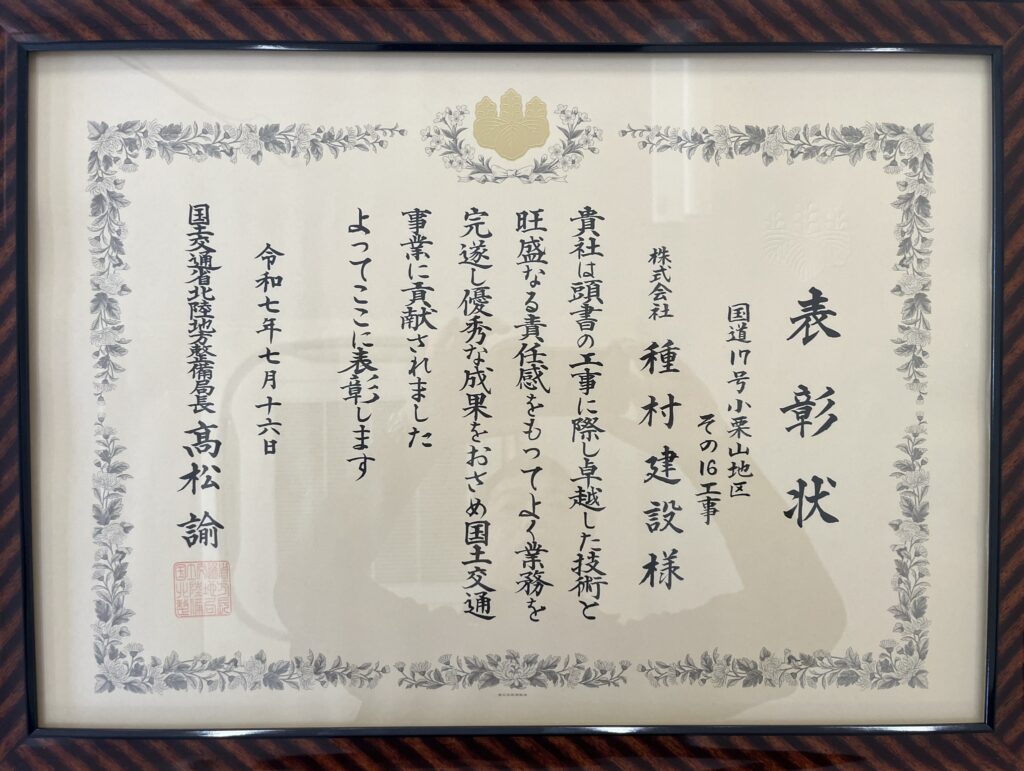 表彰状
国道17号小栗山地区
その16工事
株式会社 種村建設様
貴社は頭書の工事に際し卓越した技術と
旺盛なる責任感をもってよく業務を
完遂し優秀な成果をおさめ国土交通
事業に貢献されました
よってここに表彰します
令和七年七月十六日
国土交通省北陸地方整備局長 髙松諭